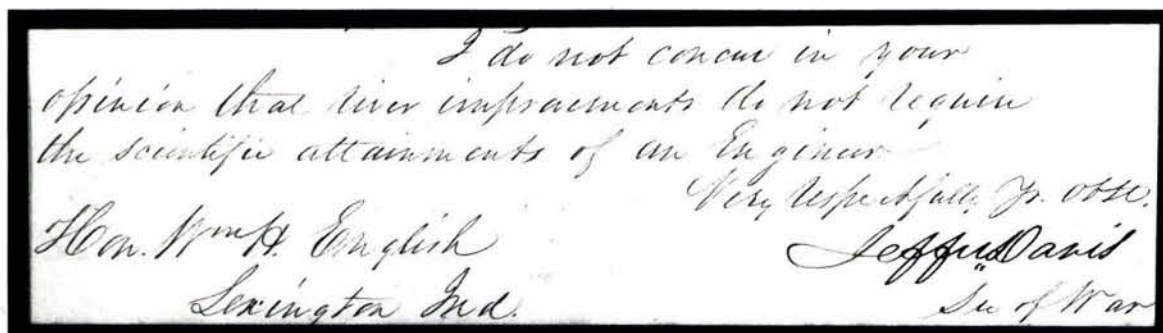 I do not concur in your
opinion that river improvements do not require
the scientific attainments of an Engineer
Very respectfully, Yr. Obt.
Hon. Wm H. English
Jeffn Davis
Lexington Ind.
Sec of War